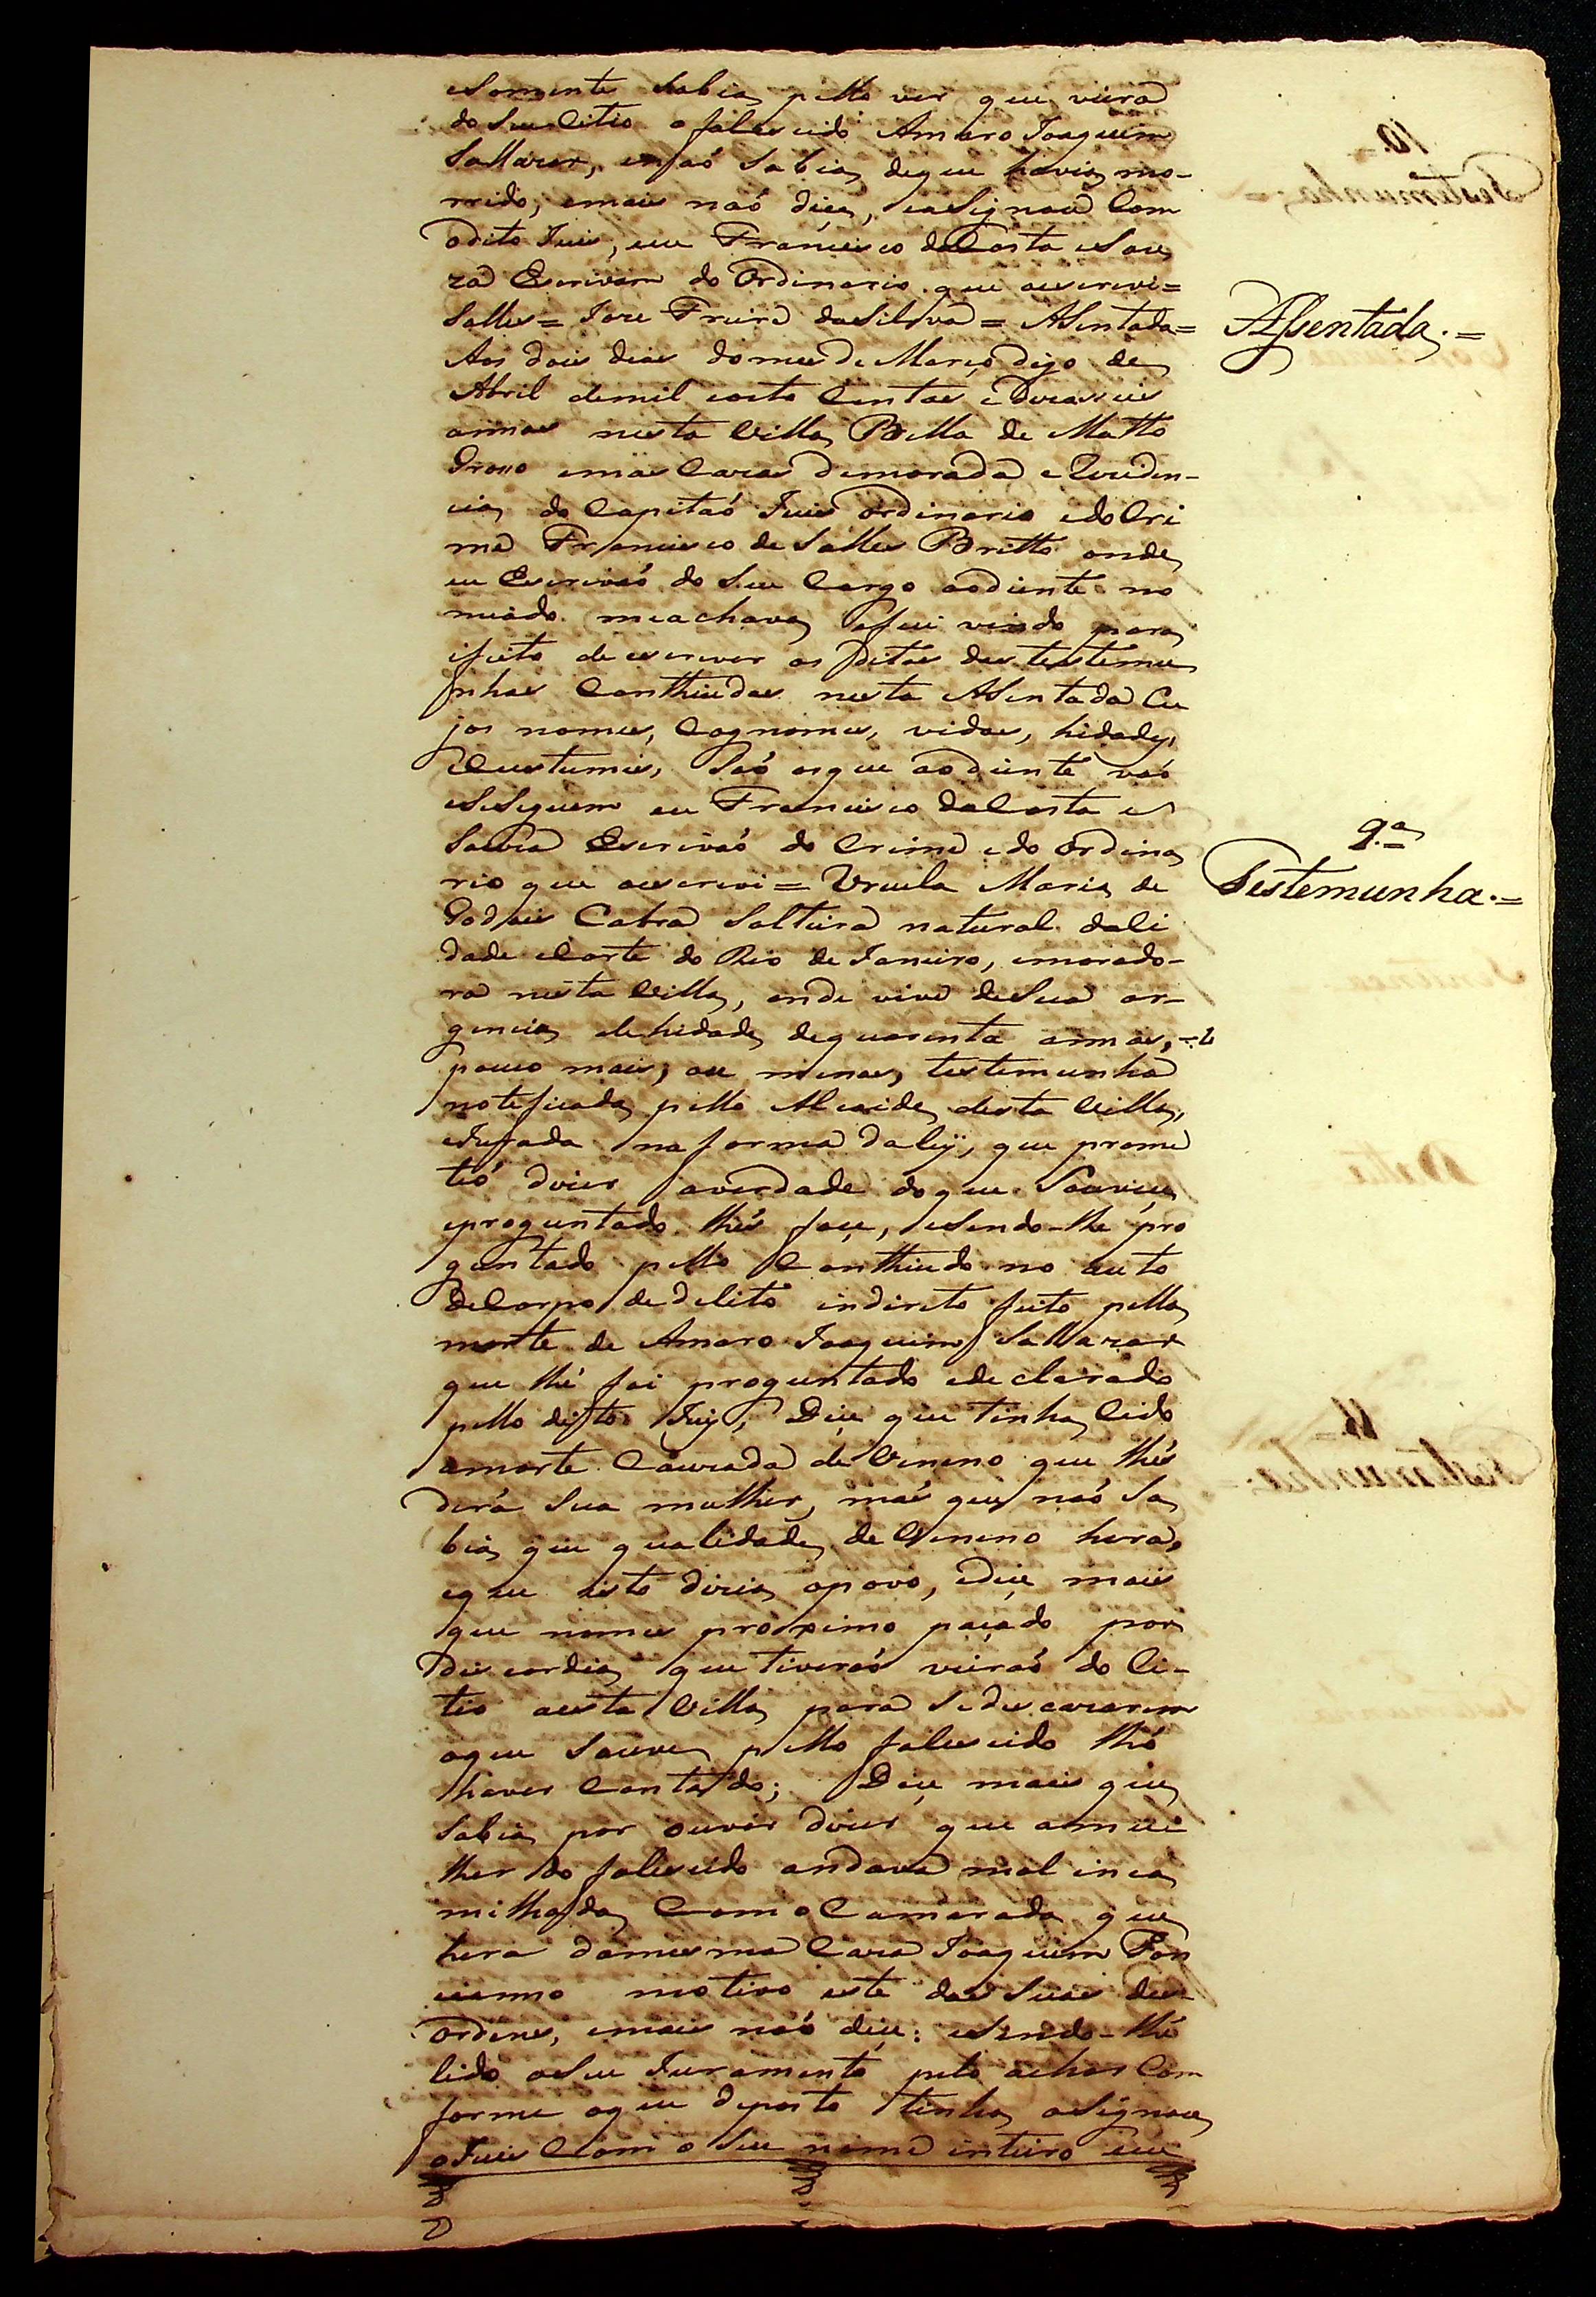 eSomente Sabia pello ver que viera
do Seu Citio o falescido Amaro Joaquim
Sallazar, enfaó Sabia deque havia mo-
rrido, emais naó dice, easignou Com
odito Juis, eeu Francisco daCosta eSou
za Escrivam do Ordinario que oescrevi=
Salles= Jose Freire daSilva= ASentada=
Assentada.=
Aos dois dias domes de Março digo de
Abril demil eoito Centos e
annos nesta Villa Bella de Matto
Groso emas Cazas demorada e Reziden-
cia do Capitaó Juis Ordinario edoCri
me Francisco de Salles Britto onde
eu Escrivaó do Seu Cargo aodiente no
meado meachava efui vindo para
efeito de escrever os ditos das testemu
nhas Conthiudas nesta ASentada Cu
jos nomes, Cognomes, vidas, hidades,
eCustumes, Saó osque aodiente vaó
eSeSeguem eu Francisco daCosta e
Souza Escrivaó do Crime edo Ordina
rio que oescrevi= Urcula Maria de
9.ª
Testemunha.=
Godois Cabra Solteira natural daCi
dade eCorte do Rio de Janeiro, emorado-
ra nesta Villa, onde vive deSua or-
gencia ehidade dequarenta annos,
pouco mais, ou menos, testemunha
noteficada pello Alcaide desta Villa,
eJurada na forma daley, que prome
teó dizer averdade doque Souvece
eproguntado lhé foce, eSendo-lhe pro
guntado pello Conthiudo no auto
deCorpo dedelito indireto feito pella
morte de Amaro Joaquim Sallazar
que lhé foi proguntado edeclarado
pello dito Juis, Dice que tinha Cido
amorte Cauzada de Veneno que lhé
dera Sua mulher, más que naó Sa
bia que qualidade de Veneno hera,
eque isto dizia opovo, eDice mais
que nomes proximo paçado por
discordia que tiveraó vieraó do Ci-
tio aesta Villa para Sedescazarem
oque Souve pello falescido lhó
haver Contado; Dice mais que
Sabia por ouvir dizer que amu
lher do falescido andava mal inca
milhada Com o Camarada que
hera damesma Caza Joaquim Pon
cianno motivo este das Suas des-
ordens, emais naó dice: eSendo-lhé
lido oSeu Juramento pelo achar Com
forme oque deposto tinha asignou
oJuis Com o Seu nome inteiro eeu